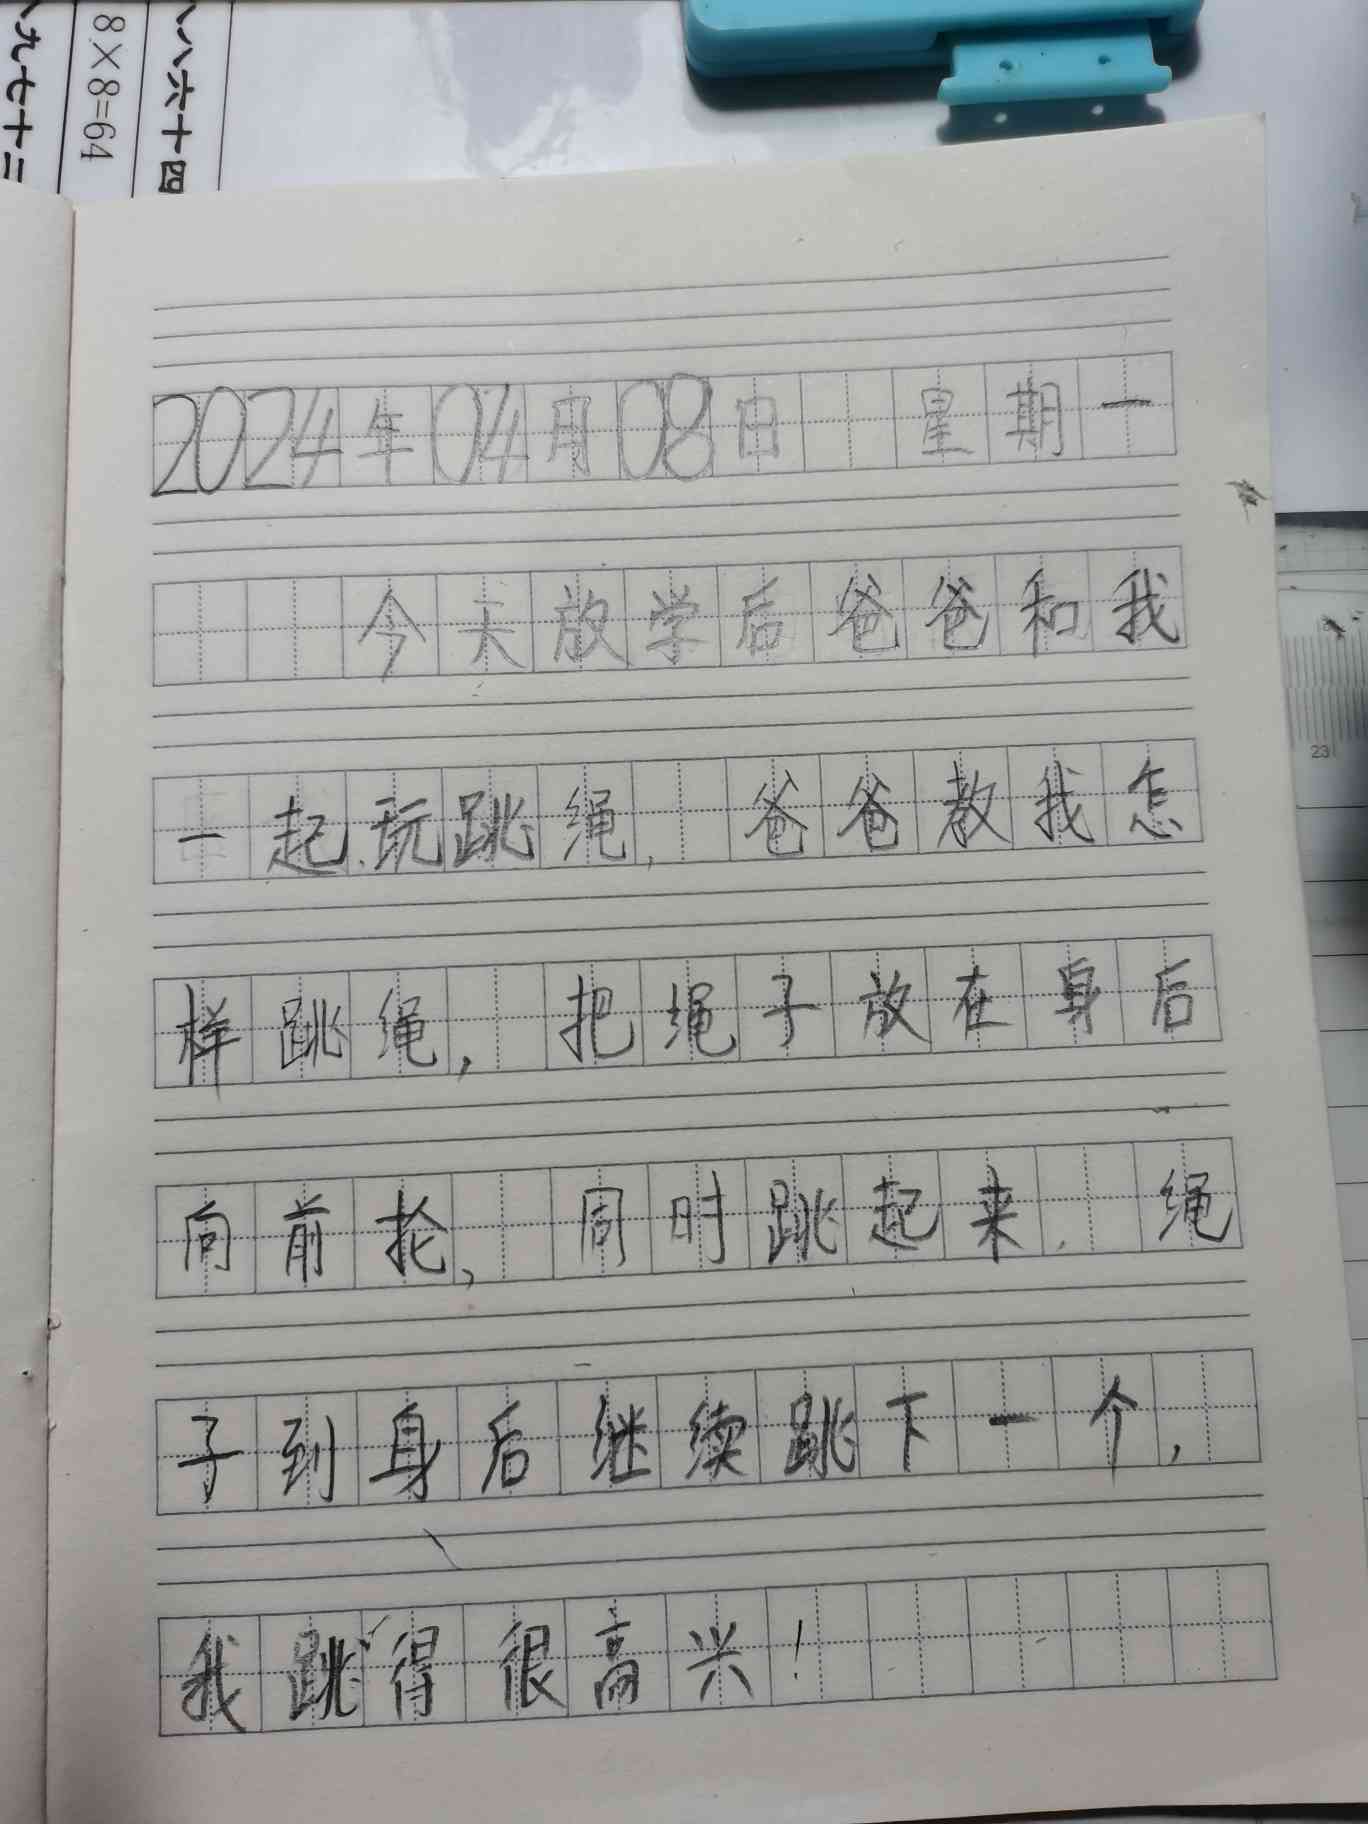 八九七十二
8×8=64
八八六十四
2024年04月08日 星期一
今天放学后爸爸和我
一起玩跳绳, 爸爸教我怎
样跳绳, 把绳子放在身后
向前抡, 同时跳起来, 绳
子到身后继续跳下一个,
我跳得很高兴!
23